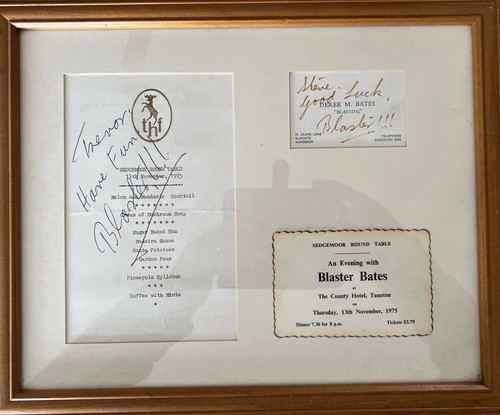 Trevor,
Have Fun
Blaster!!!
thf
SEDGEMOOR ROUND TABLE
13th November, 1975
Melon and Mandarin Cocktail
Cream of Mushroom Soup
Sugar Baked Ham
Madeira Sauce
Sauté Potatoes
Garden Peas
Pineapple Syllabub
Coffee with Mints
Steve.
Good Luck,
Blaster!!!
DEREK M. BATES
"BLASTING"
TELEPHONE
SANDBACH
SEDGEMOOR ROUND TABLE
An Evening with
Blaster Bates
at
The County Hotel, Taunton
on
Thursday, 13th November, 1975
Dinner 7.30 for 8 p.m.
Tickets £3.75